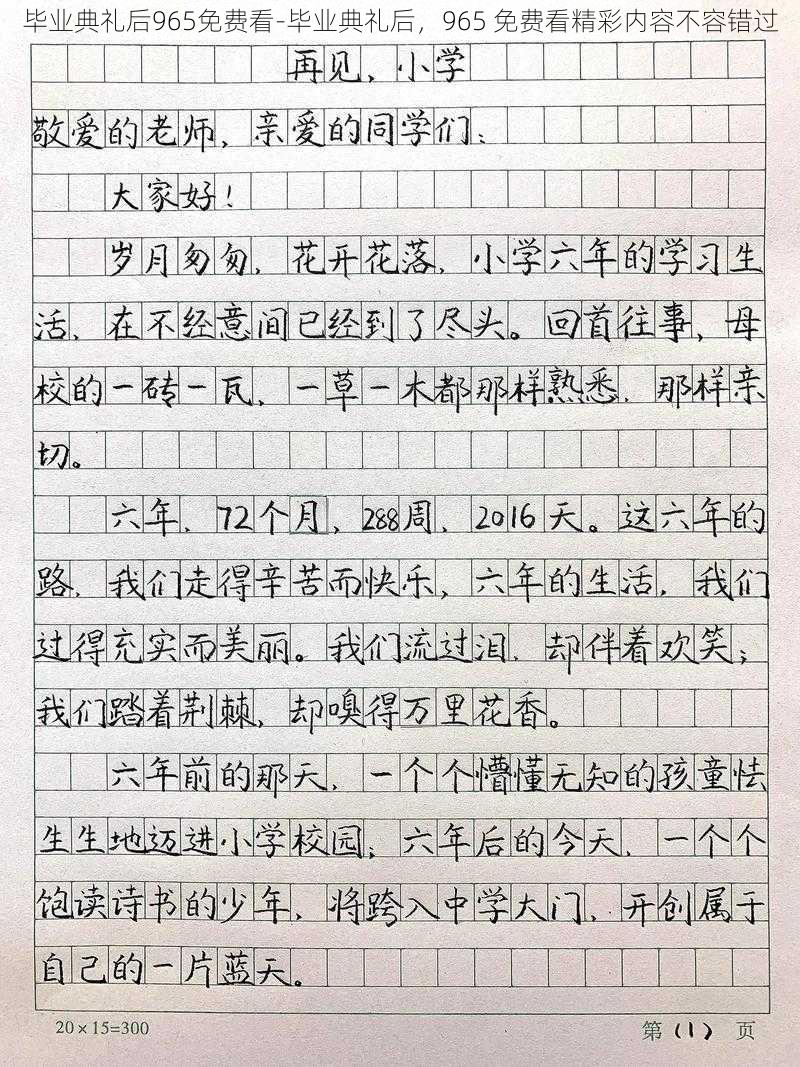 毕业典礼后965免费看-毕业典礼后，965 免费看精彩内容不容错过
再见，小学
敬爱的老师，亲爱的同学们：
大家好！
岁月匆匆，花开花落，小学六年的学习生
活，在不经意间已经到了尽头。回首往事，母
校的一砖一瓦，一草一木都那样熟悉，那样亲
切。
六年，72个月，288周，2016天。这六年的
路，我们走得辛苦而快乐，六年的生活，我们
过得充实而美丽。我们流过泪，却伴着欢笑；
我们踏着荆棘，却嗅得万里花香。
六年前的那天，一个个懵懂无知的孩童怯
生生地迈进小学校园；六年后的今天，一个个
饱读诗书的少年，将跨入中学大门，开创属于
自己的一片蓝天。
20×15=300
第（1）页